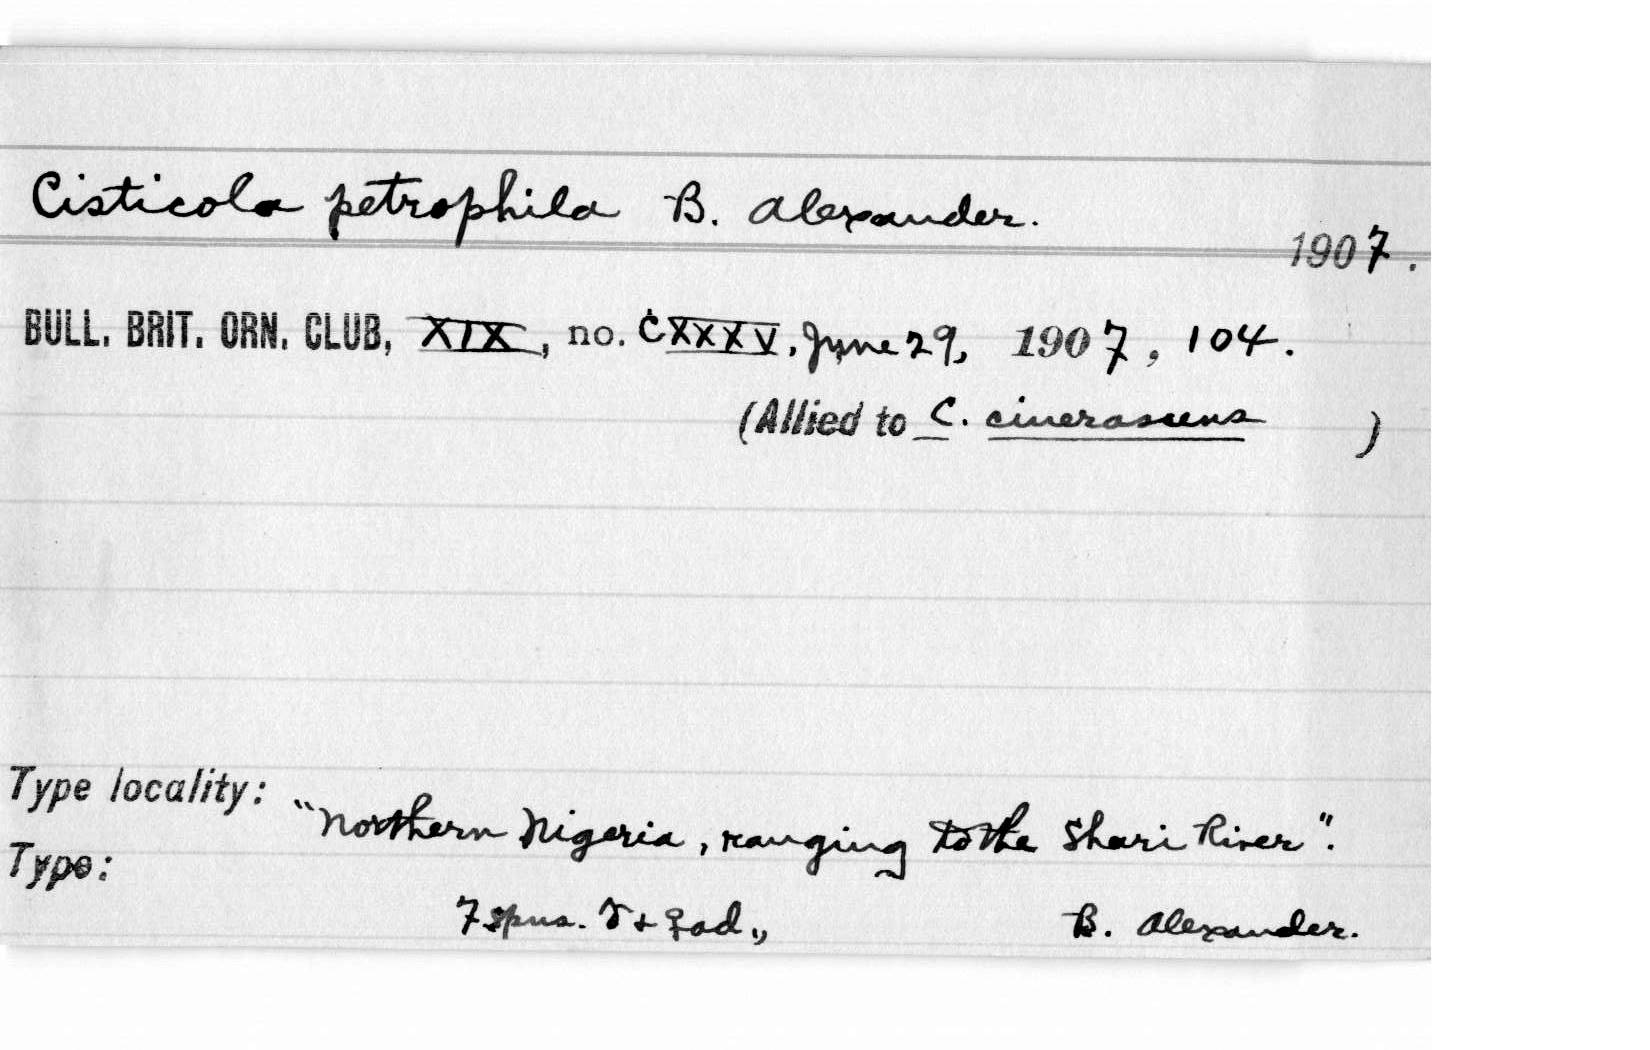 Cisticola petrophila B. Alexander.
1907.
BULL. BRIT. ORN. CLUB, XIX, no. CXXXV, June 29, 1907, 104.
(Allied to C. cinerascens )
Type locality:
"Northern Nigeria, ranging to the Shari River".
Type:
7 spns. ♂ + ♀ ad., B. Alexander.